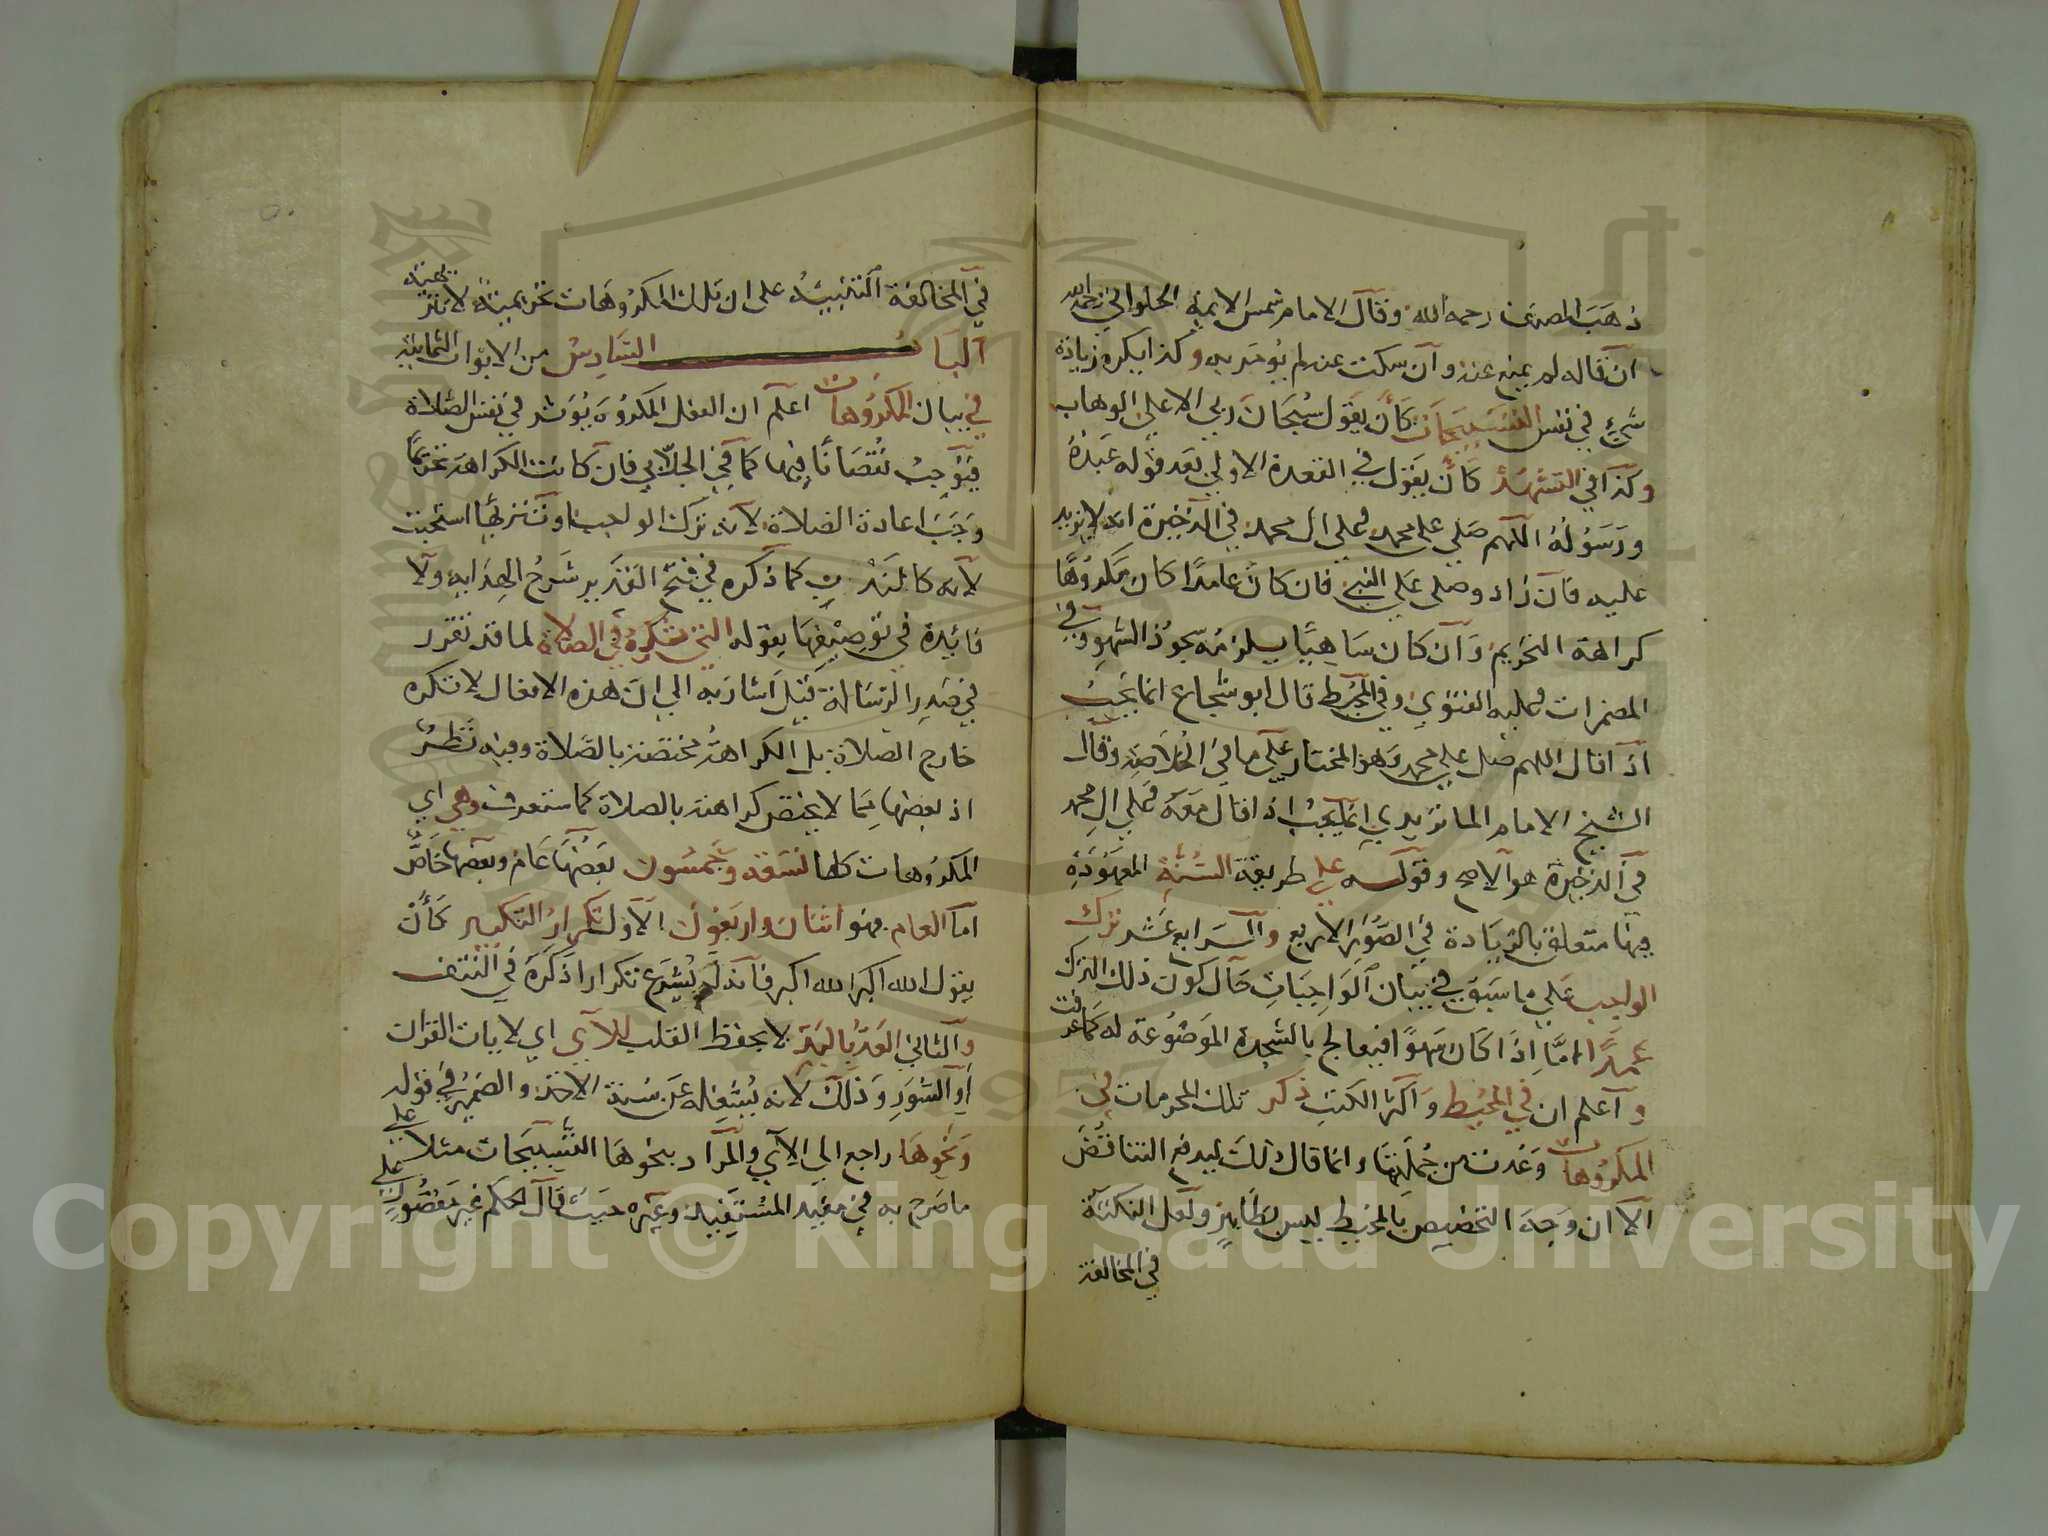 ذهب المصنف رحمه الله وقال الامام شمس الايمة الحلواني رحمه الله
ان قاله لم يمنع عنه وان سكت عنه لم يومر به وكذا يكره زيادة
شيء في نفس التسبيحات كان يقول سبحان ربي الاعلي الوهاب
وكذا في التشهد كان يقول في القعدة الاولي بعد قوله عبده
ورسوله اللهم صلي علي محمد وعلي ال محمد في الذخيرة انه لا يزيد
عليه فان زاد وصلي علي النبي فان كان عامدا كان مكروها
كراهة التحريم وان كان ساهيا يلزمه سجود السهو وفي
المضمرات وعليه الفتوي وفي المحيط قال ابو شجاع انما يجب
اذا قال اللهم صل علي محمد وهو المختار علي ما في الخلاصة وقال
الشيخ الامام الماتريدي انما يجب اذا قال معه وعلي ال محمد
في الذخيرة هو الاصح وقوله علي طريقة السنة المعهودة
فيها متعلق بالزيادة في الصور الاربع والرابع عشر ترك
الواجب علي ما سبق في بيان الواجبات حال كون ذلك الترك
عمدا اما اذا كان سهوا فيعالج بالسجدة الموضوعة له كما عرفت
واعلم ان في المحيط واكثر الكتب ذكر تلك المحرمات في
المكروهات وعدت من جملتها وانما قال ذلك ليدفع التناقض
الا ان وجه التخصيص بالمحيط ليس بظاهر ولعل النكتة
في المخالفة
في المخالفة التنبيه علي ان تلك المكروهات تحريمية لا تنزيهية
الباب السادس من الابواب الثمانية
في بيان المكروهات اعلم ان الفعل المكروه يوثر في نفس الصلاة
فيوجب نقصانا فيها كما في الجلابي فان كانت الكراهة تحريما
وجب اعادة الصلاة لانه ترك الواجب او تنزيها استحبت
لانه كالمندوب كما ذكره في فتح القدير شرح الهداية ولا
فائدة في توصيفها بقوله التي تكره في الصلاة لما قد تقرر
في صدر الرسالة قيل اشار به الي ان هذه الافعال لا تكره
خارج الصلاة بل الكراهة مختصة بالصلاة وفيه نظر
اذ بعضها مما لا يختص كراهته بالصلاة كما ستعرف وهي اي
المكروهات كلها تسعة وخمسون بعضها عام وبعضها خاص
اما العام فهو اثنان واربعون الاول تكرار التكبير كان
يقول الله اكبر الله اكبر فانه لم يشرع تكرارا ذكره في النتف
والثاني العد باليد لا بحفظ القلب للآي اي لايات القران
او السور وذلك لانه يشغله عن سنة الاخذ والضمير في قوله
ونحوها راجع الي الآي والمراد بنحوها التسبيحات مثلا علي
ما صرح به في مفيد المستفيد وغيره حيث قال الحكم غير مقصور علي